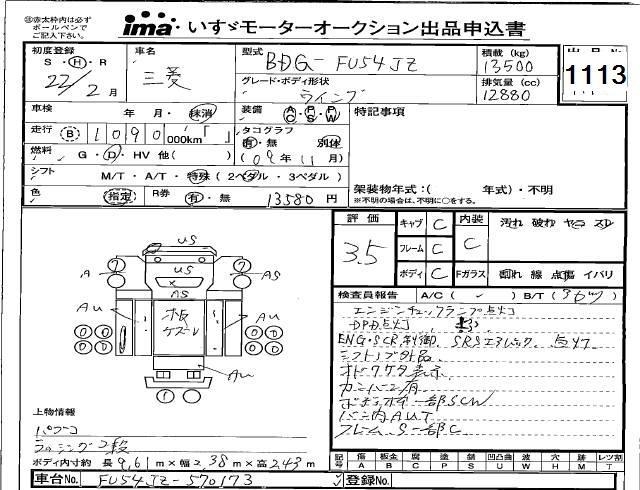 ㊟赤太枠内は必ず
ボールペンで
ご記入下さい。
ima いすゞモーターオークション出品申込書
初度登録
S・H・R
22/2月
車名
三菱
型式
BDG-FU54JZ
グレード・ボディ形状
ウイング
積載 (kg)
13500
排気量 (cc)
12880
出品No
1113
車検 年・月・抹消
装備 A C P S P W
特記事項
走行 B 1090 000km
タコグラフ
有・無 別体
(09年11月)
燃料 G・D・HV 他( )
シフト M/T・A/T・特殊(2ペダル・3ペダル)
架装物年式:( 年式)・不明
※不明の場合は、不明に○をする。
色 指定 R券 有・無 13580円
評価
3.5
キャブ C
フレーム C
ボディ C
内装
C
Fガラス
汚れ 破れ ヤニ スレ
割れ 線 点傷 イバリ
検査員報告 A/C( ✓ ) B/T(
エンジンチェックランプ点灯
DPD点灯
ENG・SCR制御、SRSエアバック、点灯
シフトノブ外品
オドケタ表示
カンバン有
ボディ 一部SCW
バン内AUT
フレーム、S一部C
US
US
AS
A
AS
AU
AU
板
AU
上物情報
パブコ
ラッシング2段
ボディ内寸約 長9.61m×幅2.38m×高2.43m
記号 傷A 板金B 腐C 塗P 錆S 凹凸曲U 波W 穴H 跡M レツ割T
車台No. FU54JZ-570173
登録No.